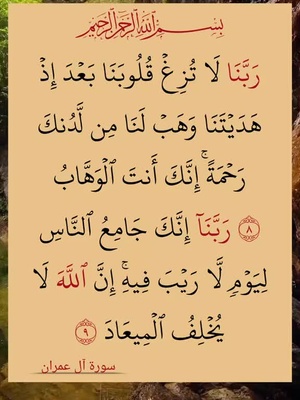 بِسْمِ اللَّهِ الرَّحْمَٰنِ الرَّحِيمِ
رَبَّنَا لَا تُزِغْ قُلُوبَنَا بَعْدَ إِذْ
هَدَيْتَنَا وَهَبْ لَنَا مِن لَّدُنكَ
رَحْمَةً ۚ إِنَّكَ أَنتَ ٱلْوَهَّابُ
٨ رَبَّنَآ إِنَّكَ جَامِعُ ٱلنَّاسِ
لِيَوْمٍ لَّا رَيْبَ فِيهِ ۚ إِنَّ ٱللَّهَ لَا
يُخْلِفُ ٱلْمِيعَادَ ٩
سورة آل عمران